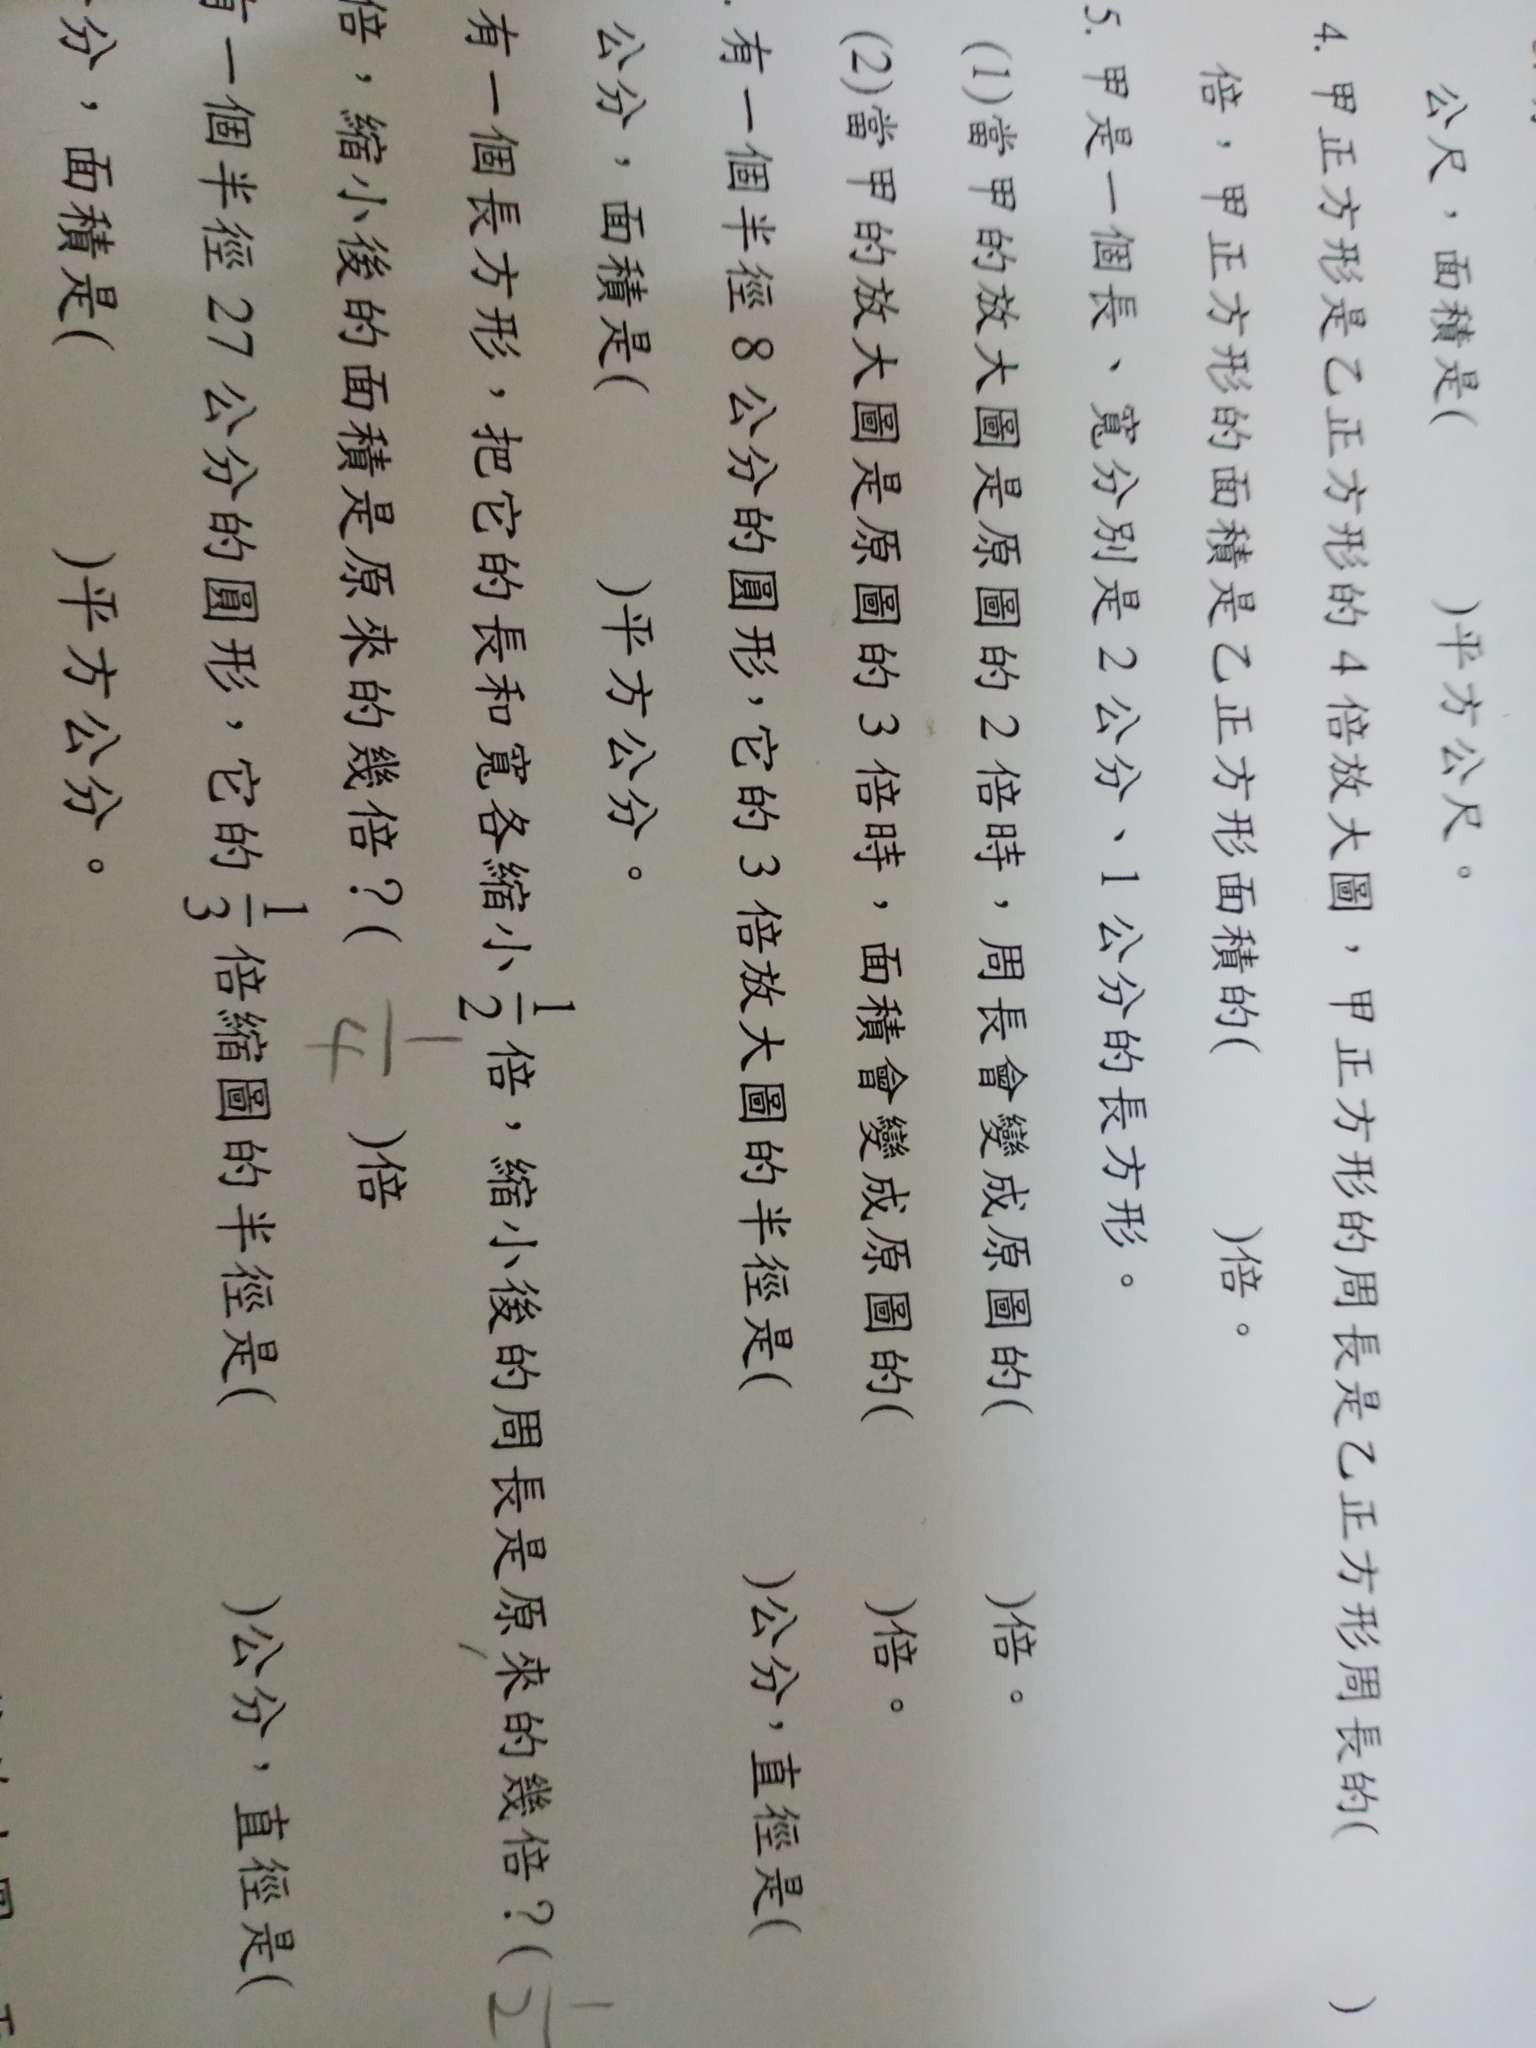 公尺，面積是(　　)平方公尺。
4. 甲正方形是乙正方形的 4 倍放大圖，甲正方形的周長是乙正方形周長的(　　)
倍，甲正方形的面積是乙正方形面積的(　　)倍。
5. 甲是一個長、寬分別是 2 公分、1 公分的長方形。
(1)當甲的放大圖是原圖的 2 倍時，周長會變成原圖的(　　)倍。
(2)當甲的放大圖是原圖的 3 倍時，面積會變成原圖的(　　)倍。
. 有一個半徑 8 公分的圓形，它的 3 倍放大圖的半徑是(　　)公分，直徑是(
公分，面積是(　　)平方公分。
有一個長方形，把它的長和寬各縮小 1/2 倍，縮小後的周長是原來的幾倍？( 1/2
倍，縮小後的面積是原來的幾倍？( 1/4 )倍
有一個半徑 27 公分的圓形，它的 1/3 倍縮圖的半徑是(　　)公分，直徑是(
分，面積是(　　)平方公分。